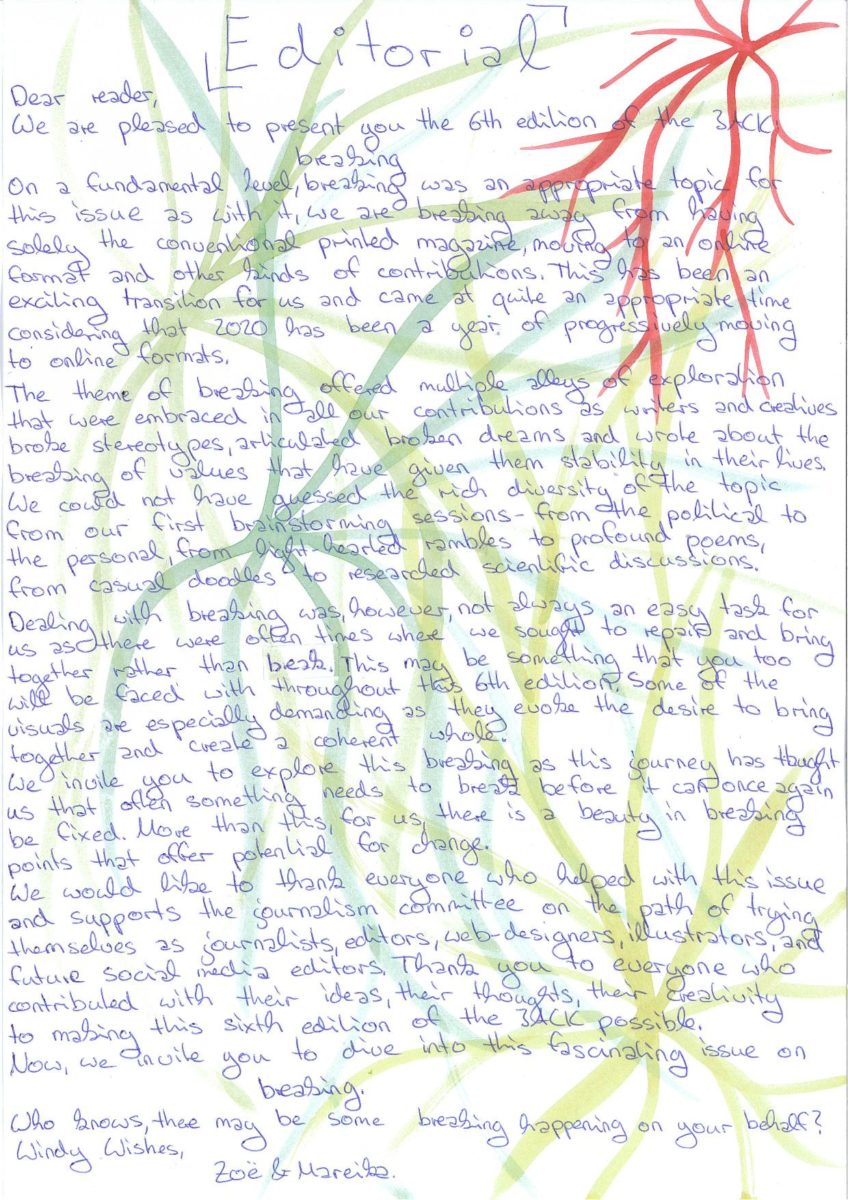 Editorial
Dear reader,
We are pleased to present you the 6th edition of the 3ACK:
breaking
On a fundamental level, breaking was an appropriate topic for
this issue as with it, we are breaking away from having
solely the conventional printed magazine, moving to an online
format and other kinds of contributions. This has been an
exciting transition for us and came at quite an appropriate time
considering that 2020 has been a year of progressively moving
to online formats.
The theme of breaking offered multiple alleys of exploration
that were embraced in all our contributions as writers and creatives
broke stereotypes, articulated broken dreams and wrote about the
breaking of values that have given them stability in their lives.
We could not have guessed the rich diversity of the topic
from our first brainstorming sessions - from the political to
the personal, from light-hearted rambles to profound poems,
from casual doodles to researched scientific discussions.
Dealing with breaking was, however, not always an easy task for
us as there were often times where we sought to repair and bring
together rather than break. This may be something that you too
will be faced with throughout this 6th edition. Some of the
visuals are especially demanding as they evoke the desire to bring
together and create a coherent whole.
We invite you to explore this breaking as this journey has thaught
us that often something needs to break before it can once again
be fixed. More than this, for us, there is a beauty in breaking
points that offer potential for change.
We would like to thank everyone who helped with this issue
and supports the journalism committee on the path of trying
themselves as journalists, editors, web-designers, illustrators, and
future social media editors. Thank you to everyone who
contributed with their ideas, their thoughts, their creativity
to making this sixth edition of the 3ACK possible.
Now, we invite you to dive into this fascinating issue on
breaking.
Who knows, thee may be some breaking happening on your behalf?
Windy Wishes,
Zoë & Mareike.